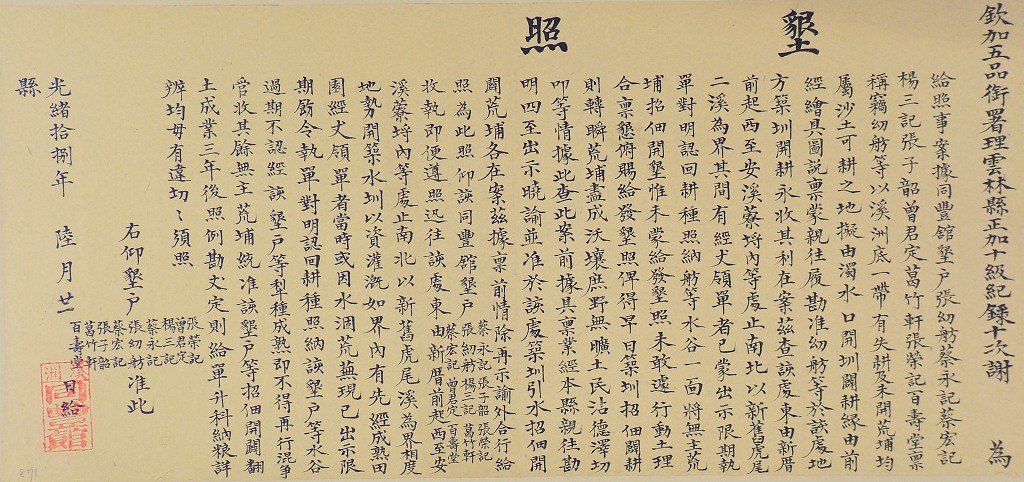 墾照
欽加五品銜署理雲林縣正加十級紀錄十次謝　為
給照事案據同豐館墾戶張幼舫蔡永記蔡宏記
楊三記張子韶曾君定葛竹軒張榮記百壽堂稟
稱竊幼舫等以溪洲底一帶有失耕及未開荒埔均
屬沙土可耕之地擬由濁水口開圳闢耕緣由前
經繪具圖說稟蒙親往履勘准幼舫等於該處地
方築圳開耕永收其利在案茲查該處東由新厝
前起西至安溪藔埒內等處止南北以新舊虎尾
二溪為界其間有經丈領單者已蒙出示限期執
單對明認回耕種照納舫等水谷一面將無主荒
埔招佃開墾惟未蒙給發墾照未敢遽行動土理
合稟懇俯賜給發墾照俾得早日築圳招佃闢耕
則轉瞬荒埔盡成沃壤庶野無曠土民沾德澤切
叩等情據此查此案前據具稟業經本縣親往勘
明四至出示曉諭並准於該處築圳引水招佃開
闢荒埔各在案茲據稟前情除再示諭外合行給
照為此照仰該同豐館墾戶蔡永記張子韶張榮記張幼舫楊三記葛竹軒蔡宏記曾君定百壽堂
收執即便遵照迅往該處東由新厝前起西至安
溪藔埒內等處止南北以新舊虎尾溪為界相度
地勢開築水圳以資灌溉如界內有先經成熟田
園經丈領單者當時或因水涸荒蕪現已出示限
期飭令執單對明認回耕種照納該墾戶等水谷
過期不認經該墾戶等犁種成熟即不得再行混爭
管收其餘無主荒埔統准該墾戶等招佃開闢翻
土成業三年後照例勘丈定則給單升科納粮詳
辦均毋有違切〻須照
右仰墾戶張榮記曾君定楊三記蔡永記張幼舫蔡宏記張子韶葛竹軒百壽堂准此
光緒拾捌年　陸月廿一日給
縣